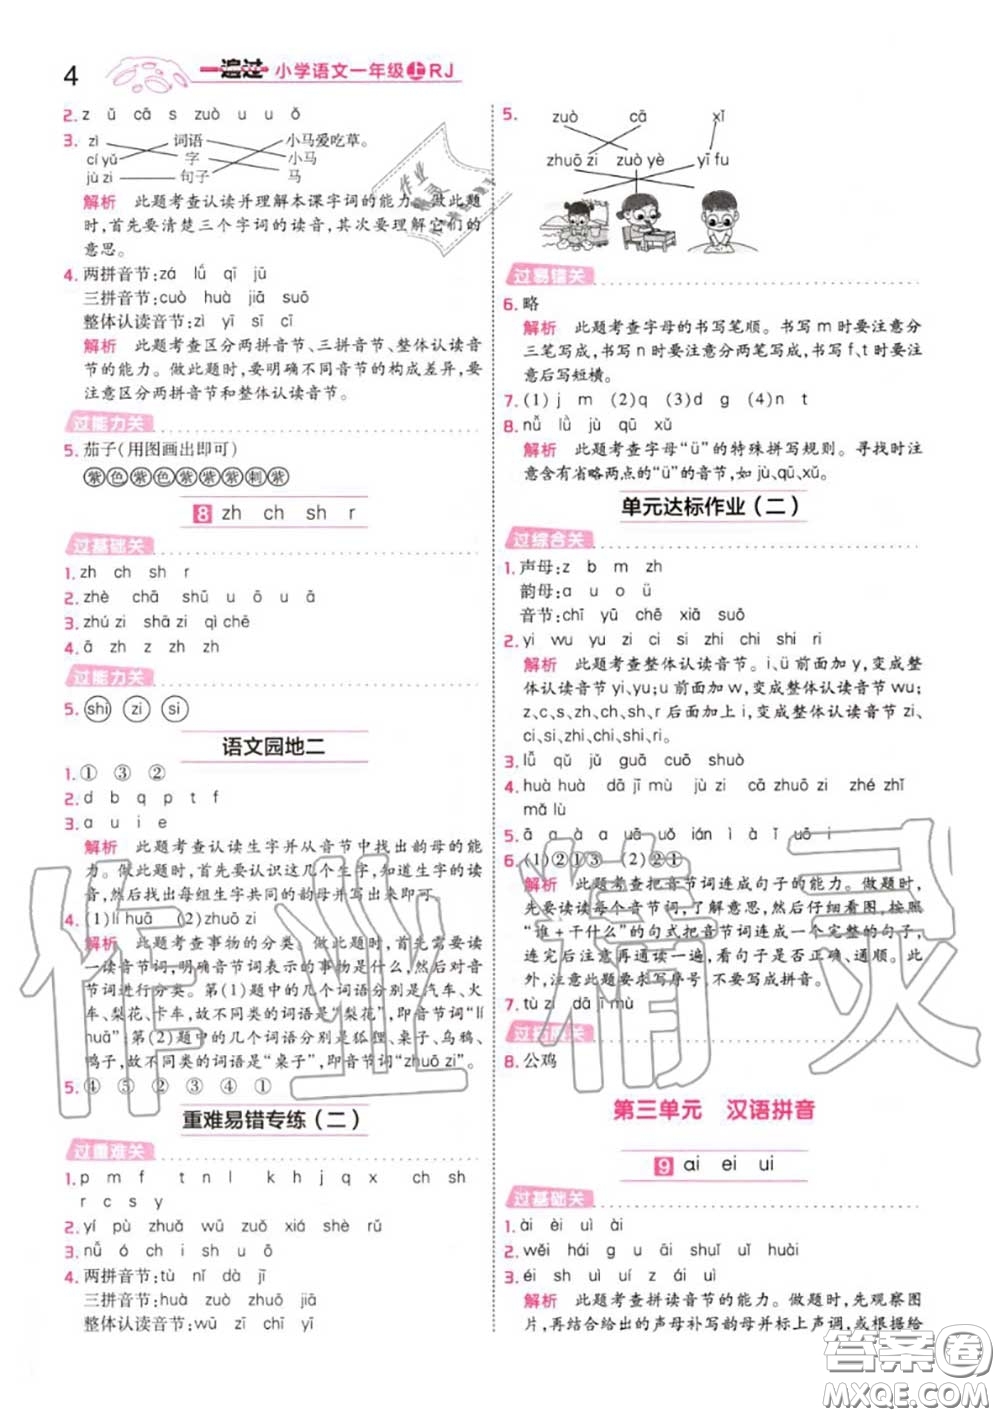 4
一遍过 小学语文一年级上RJ
2. z ǔ cā s zuò u u ǒ
3. zì 词语 小马爱吃草。
cí yǔ 字 小马
jù zi 句子 马
解析 此题考查认读并理解本课字词的能力。做此题
时,首先要清楚三个字词的读音,其次要理解它们的
意思。
4. 两拼音节:zá lǜ qī jū
三拼音节:cuò huà jiā suǒ
整体认读音节:zì yī sī cī
解析 此题考查区分两拼音节、三拼音节、整体认读音
节的能力。做此题时,要明确不同音节的构成差异,要
注意区分两拼音节和整体认读音节。
过能力关
5. 茄子(用图画出即可)
紫色紫色紫紫紫刺紫
8 zh ch sh r
过基础关
1. zh ch sh r
2. zhè chā shū u ō u ā
3. zhú zi shā zi qì chē
4. ā zh z zh zh
过能力关
5. shì zi si
语文园地二
1. ① ③ ②
2. d b q p t f
3. a u ie
解析 此题考查认读生字并从音节中找出韵母的能
力。做此题时,首先要认识这几个生字,知道生字的读
音,然后找出每组生字共同的韵母并写出来即可。
4. (1)lí huā (2)zhuō zi
解析 此题考查事物的分类。做此题时,首先需要读
一读音节词,明确音节词表示的事物是什么,然后对音
节词进行分类。第(1)题中的几个词语分别是汽车、火
车、梨花、卡车,故不同类的词语是“梨花”,即音节词“lí
huā”;第(2)题中的几个词语分别是狐狸、桌子、乌鸦、
鸭子,故不同类的词语是“桌子”,即音节词“zhuō zi”。
5. ④ ⑤ ② ③ ④ ①
重难易错专练(二)
过重难关
1. p m f t n l k h j x ch sh
r c s y
2. yí pù zhuā wū zuǒ xiá shè rǔ
3. nǚ ó ch i sh u ǒ
4. 两拼音节:tù nǐ dà jī
三拼音节:huà zuò zhuō jiā
整体认读音节:wū zī chī yī
5. zuò cā xǐ
zhuō zi zuò yè yī fu
过易错关
6. 略
解析 此题考查字母的书写笔顺。书写 m 时要注意分
三笔写成,书写 n 时要注意分两笔写成,书写 f、t 时要注
意后写短横。
7. (1)j m (2)q (3)d g (4)n t
8. nǚ lǜ jù qū xǔ
解析 此题考查字母“ü”的特殊拼写规则。寻找时注
意含有省略两点的“ü”的音节,如 jù、qū、xǔ。
单元达标作业(二)
过综合关
1. 声母:z b m zh
韵母:a u o ü
音节:chī yū chē xiā suǒ
2. yi wu yu zi ci si zhi chi shi ri
解析 此题考查整体认读音节。i、ü 前面加 y,变成整
体认读音节 yi、yu;u 前面加 w,变成整体认读音节 wu;
z、c、s、zh、ch、sh、r 后面加上 i,变成整体认读音节 zi、
ci、si、zhi、chi、shi、ri。
3. lǘ qǔ jǔ guō cuò shuò
4. huà huà dā jī mù jù zi cā zhuō zi zhé zhǐ
mǎ lù
5. ā à à a uā uǒ ián ì à ī uō i
6. (1)②①③ (2)②①
解析 此题考查把音节词连成句子的能力。做题时,
先要读读每个音节词,了解意思,然后仔细看图,按照
“谁+干什么”的句式把音节词连成一个完整的句子,
连完后注意再通读一遍,看句子是否正确、通顺。此
外,注意此题要求写序号,不要写成拼音。
7. tù zi dā jī mù
过拓展关
8. 公鸡
第三单元 汉语拼音
9 ai ei ui
过基础关
1. ài èi uì ài
2. wěi hái g u āi shuǐ uǐ huài
3. éi sh uì uí z ái uí
解析 此题考查拼读音节的能力。做题时,先观察图
片,再结合给出的声母补写韵母并标上声调,或根据给
作业精灵
答案圈
MXQE.COM